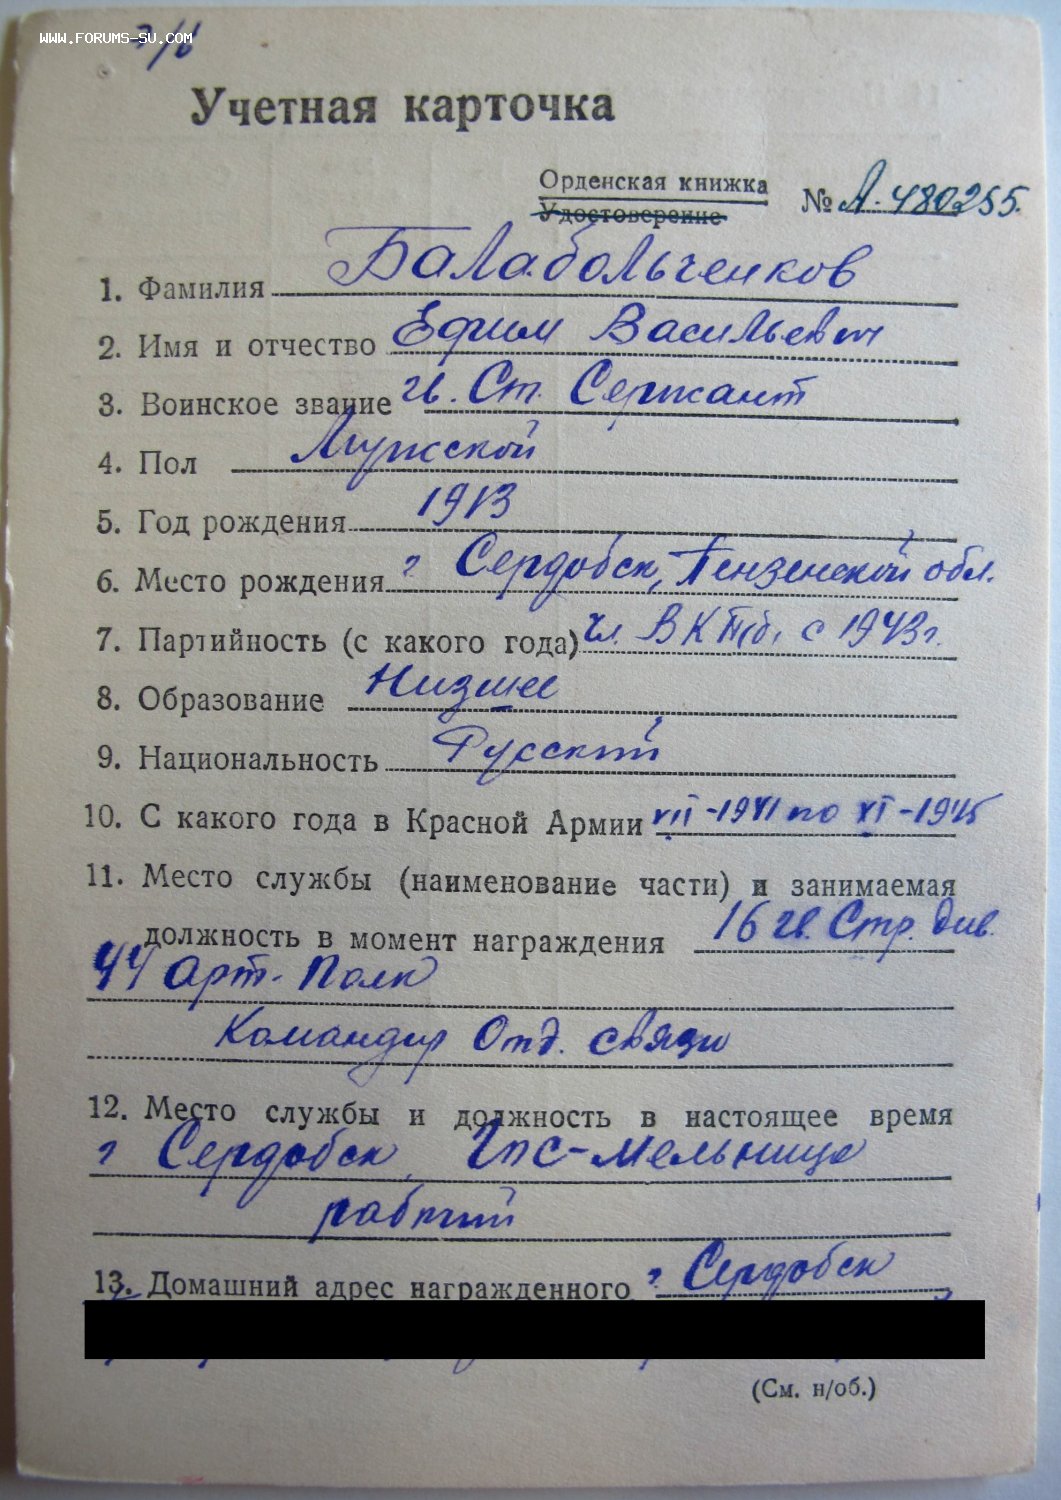 www.forums-su.com
Учетная карточка
Орденская книжка
Удостоверение
№ А-480255.
1. Фамилия Балабольченков
2. Имя и отчество Ефим Васильевич
3. Воинское звание гв. Ст. Сержант
4. Пол Мужской
5. Год рождения 1913
6. Место рождения г Сердобск, Пензенской обл.
7. Партийность (с какого года) чл. ВКП(б) с 1943г.
8. Образование Низшее
9. Национальность Русский
10. С какого года в Красной Армии VII-1941 по XI-1945
11. Место службы (наименование части) и занимаемая
должность в момент награждения 16 гв. Стр. див.
44 Арт. Полк
Командир Отд. связи
12. Место службы и должность в настоящее время
г Сердобск, -мельница
рабочий
13. Домашний адрес награжденного г. Сердобск
(См. н/об.)